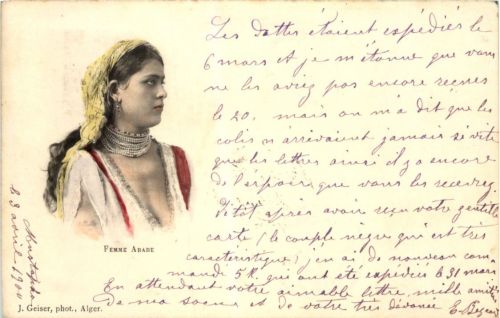 Les dattes étaient expédiés le
6 mars et je m'étonne que vous
ne les aviez pas encore reçues
le 20, mais on m'a dit que les
colis n'arrivaient jamais si vite
que les lettres ainsi il y a encore
de l'éspoir que vous les recevrez
Sitôt après avoir reçu votre gentille
carte (le couple negre qui est très
caractéristique) j'en ai de nouveau com-
mandé 5 K. qui ont été expédiés le 31 mars.
En attendant votre aimable lettre, mille amitiés
de ma soeur et de votre très dévouée E.
FEMME ARABE
Mustapha
23 avril 1900
J. Geiser, phot., Alger.